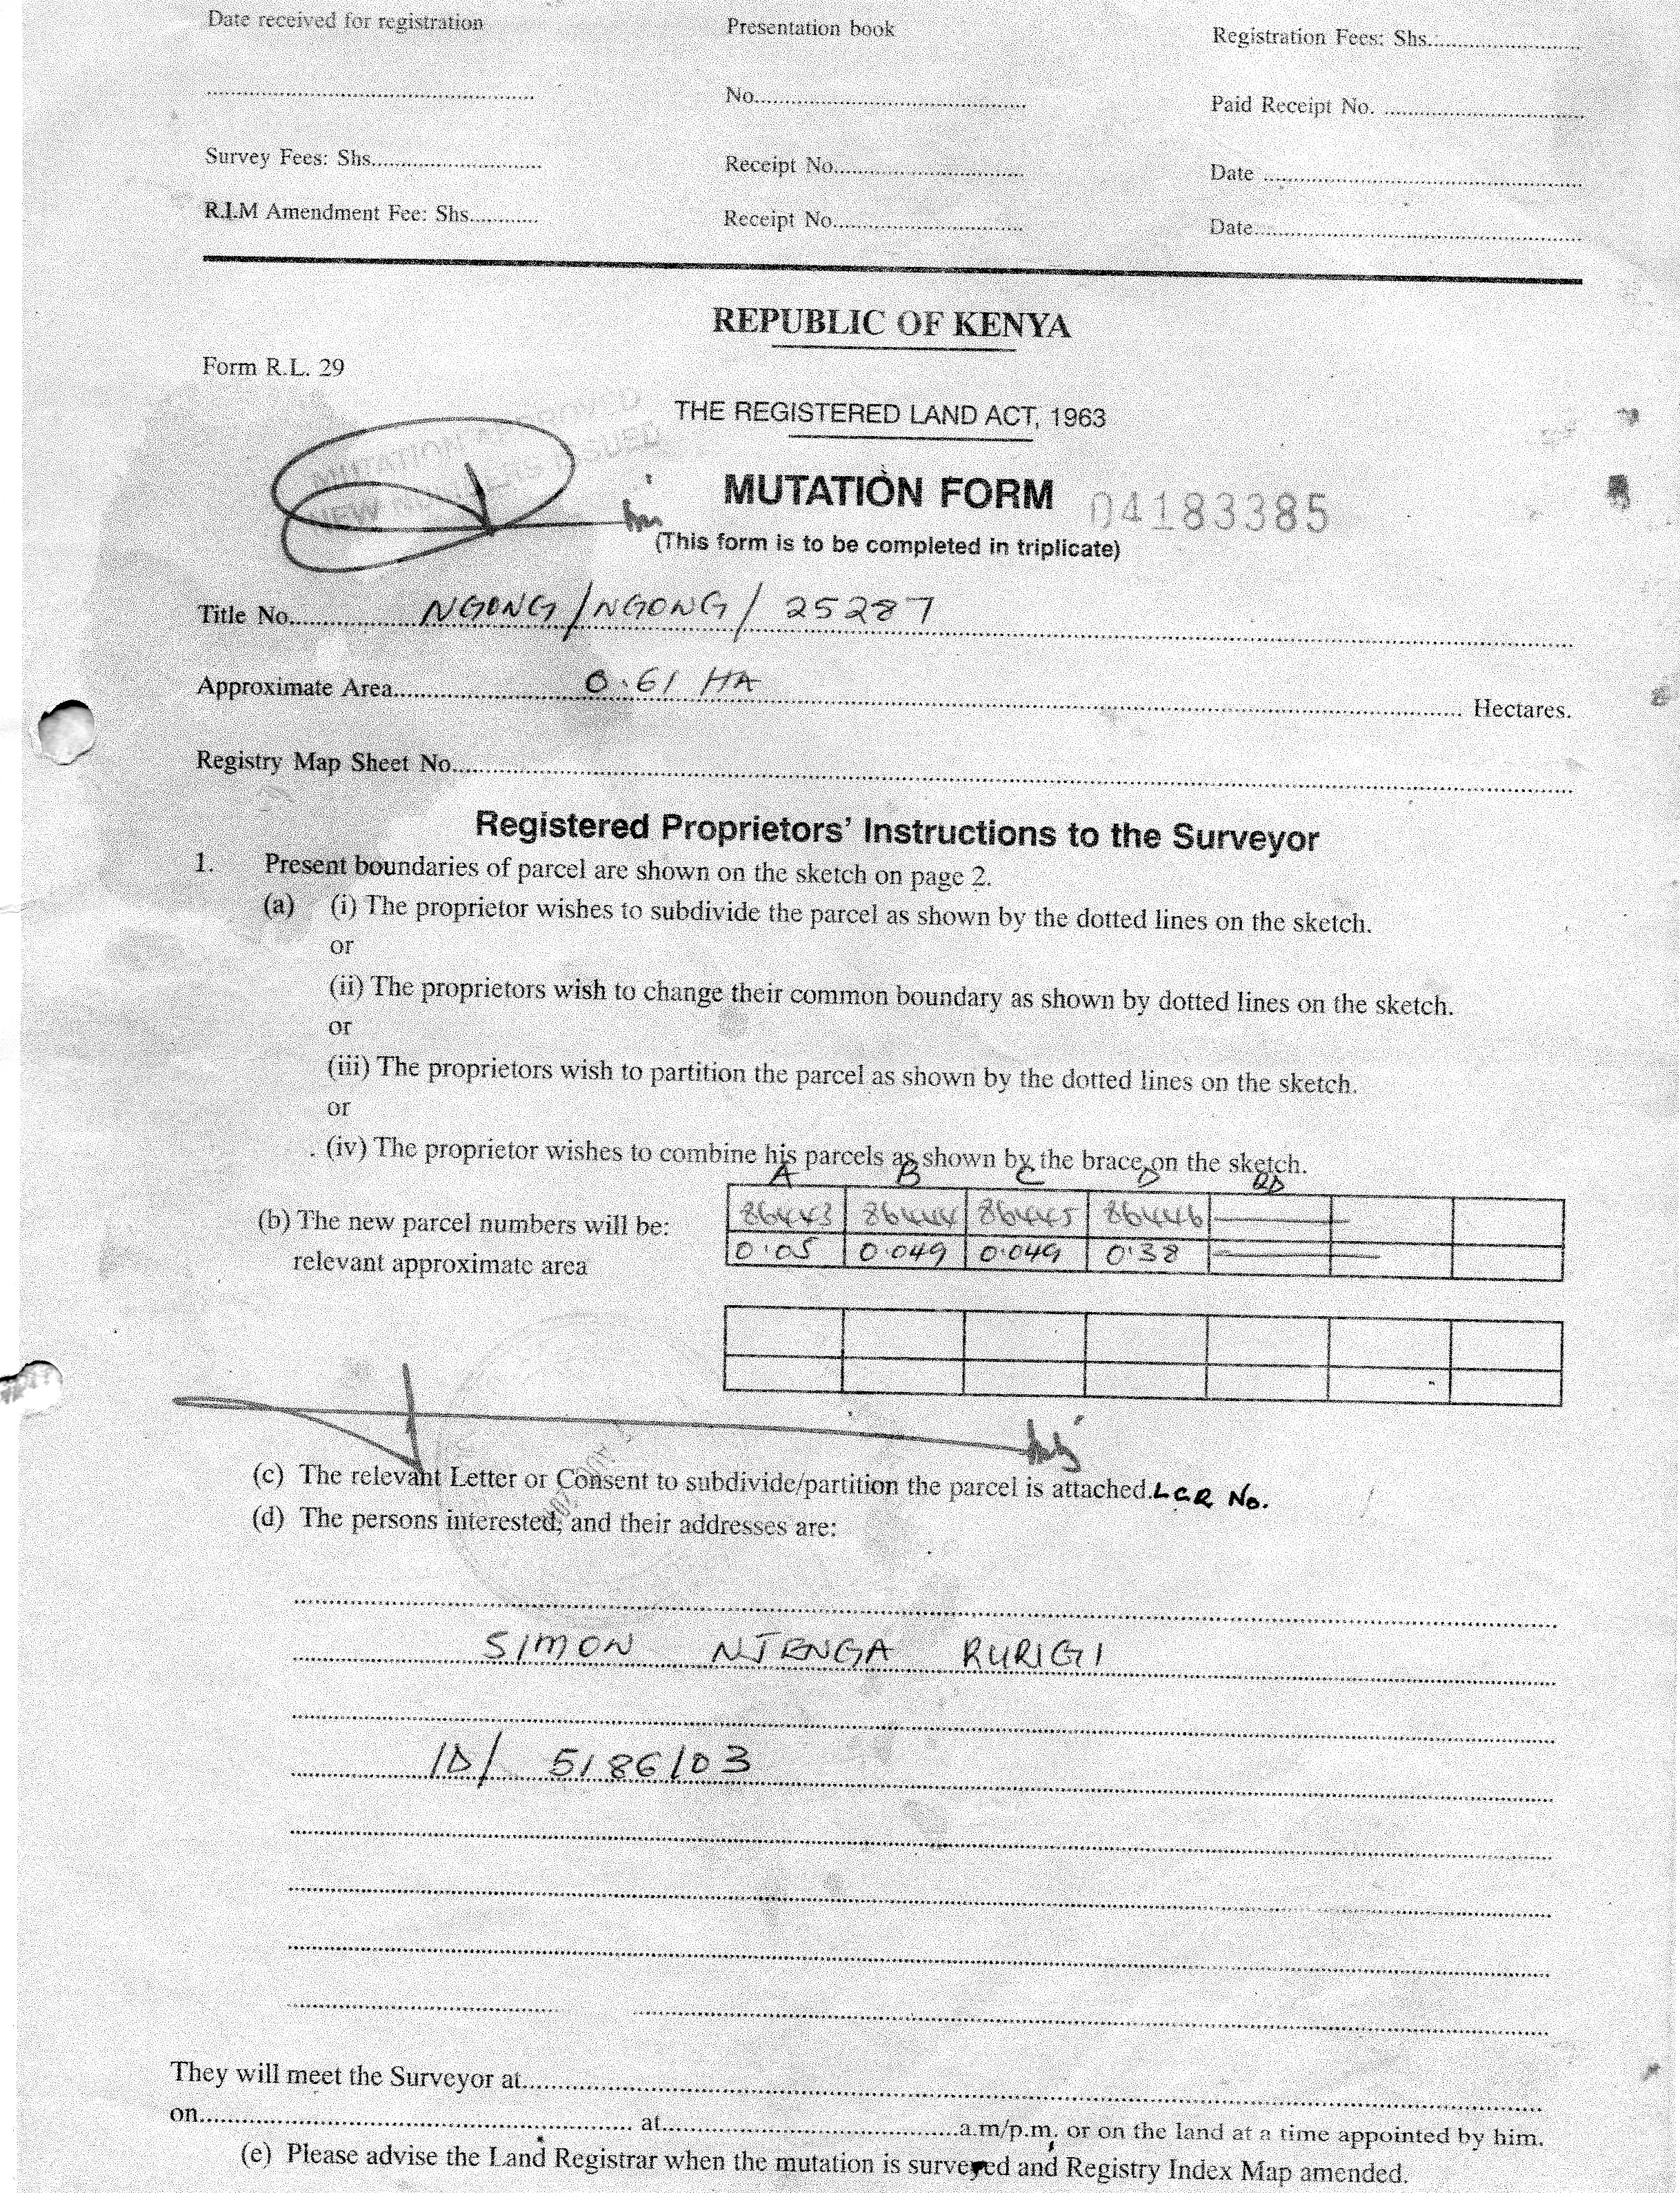 Date received for registration Presentation book Registration Fees: Shs.
No. Paid Receipt No.
Survey Fees: Shs. Receipt No. Date
R.I.M Amendment Fee: Shs. Receipt No. Date
REPUBLIC OF KENYA
Form R.L. 29
THE REGISTERED LAND ACT, 1963
MUTATION APPROVED
NEW NUMBERS ISSUED
MUTATION FORM 04183385
(This form is to be completed in triplicate)
Title No. NGONG/NGONG/25287
Approximate Area 0.61 HA Hectares.
Registry Map Sheet No.
Registered Proprietors' Instructions to the Surveyor
1. Present boundaries of parcel are shown on the sketch on page 2.
(a) (i) The proprietor wishes to subdivide the parcel as shown by the dotted lines on the sketch.
or
(ii) The proprietors wish to change their common boundary as shown by dotted lines on the sketch.
or
(iii) The proprietors wish to partition the parcel as shown by the dotted lines on the sketch.
or
(iv) The proprietor wishes to combine his parcels as shown by the brace on the sketch.
A B C D RD
(b) The new parcel numbers will be: 86443 86444 86445 86446
relevant approximate area 0.05 0.049 0.049 0.38
(c) The relevant Letter or Consent to subdivide/partition the parcel is attached. LCR No.
(d) The persons interested, and their addresses are:
SIMON NJENGA RURIGI
ID/ 5186103
They will meet the Surveyor at
on at a.m/p.m. or on the land at a time appointed by him.
(e) Please advise the Land Registrar when the mutation is surveyed and Registry Index Map amended.